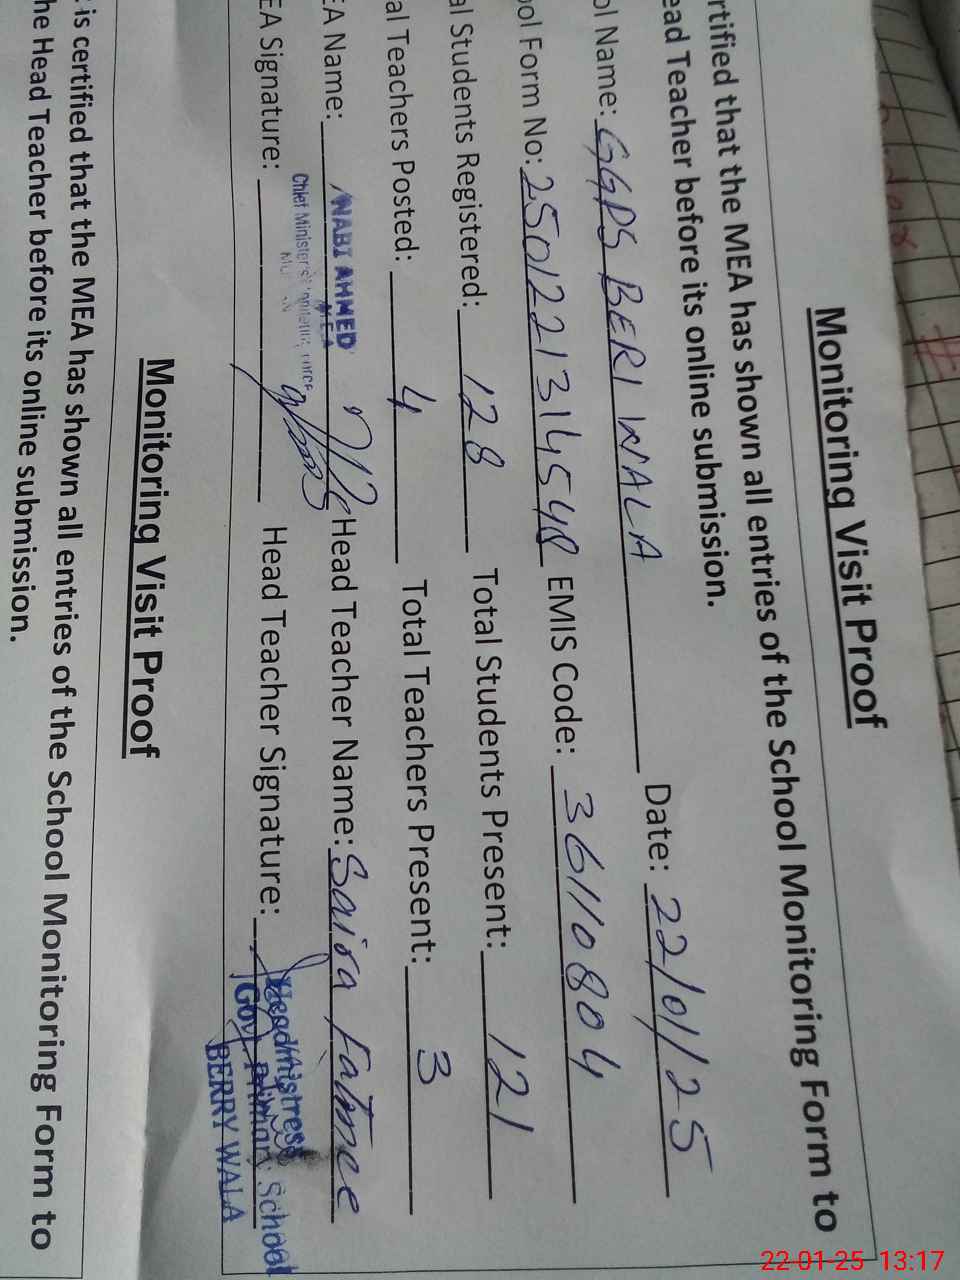 Monitoring Visit Proof
rtified that the MEA has shown all entries of the School Monitoring Form to
ead Teacher before its online submission.
ol Name: GGPS BERI WALA Date: 22/01/25
ool Form No: EMIS Code: 36110804
al Students Registered: 128 Total Students Present: 121
al Teachers Posted: 4 Total Teachers Present: 3
EA Name: NABI AHMED Head Teacher Name: Saira Fatmee
MEA
Chief Minister's Monitoring Force
EA Signature: Head Teacher Signature:
Headmistress
Govt. Primary School
BERRY WALA
Monitoring Visit Proof
is certified that the MEA has shown all entries of the School Monitoring Form to
he Head Teacher before its online submission.
22-01-25 13:17